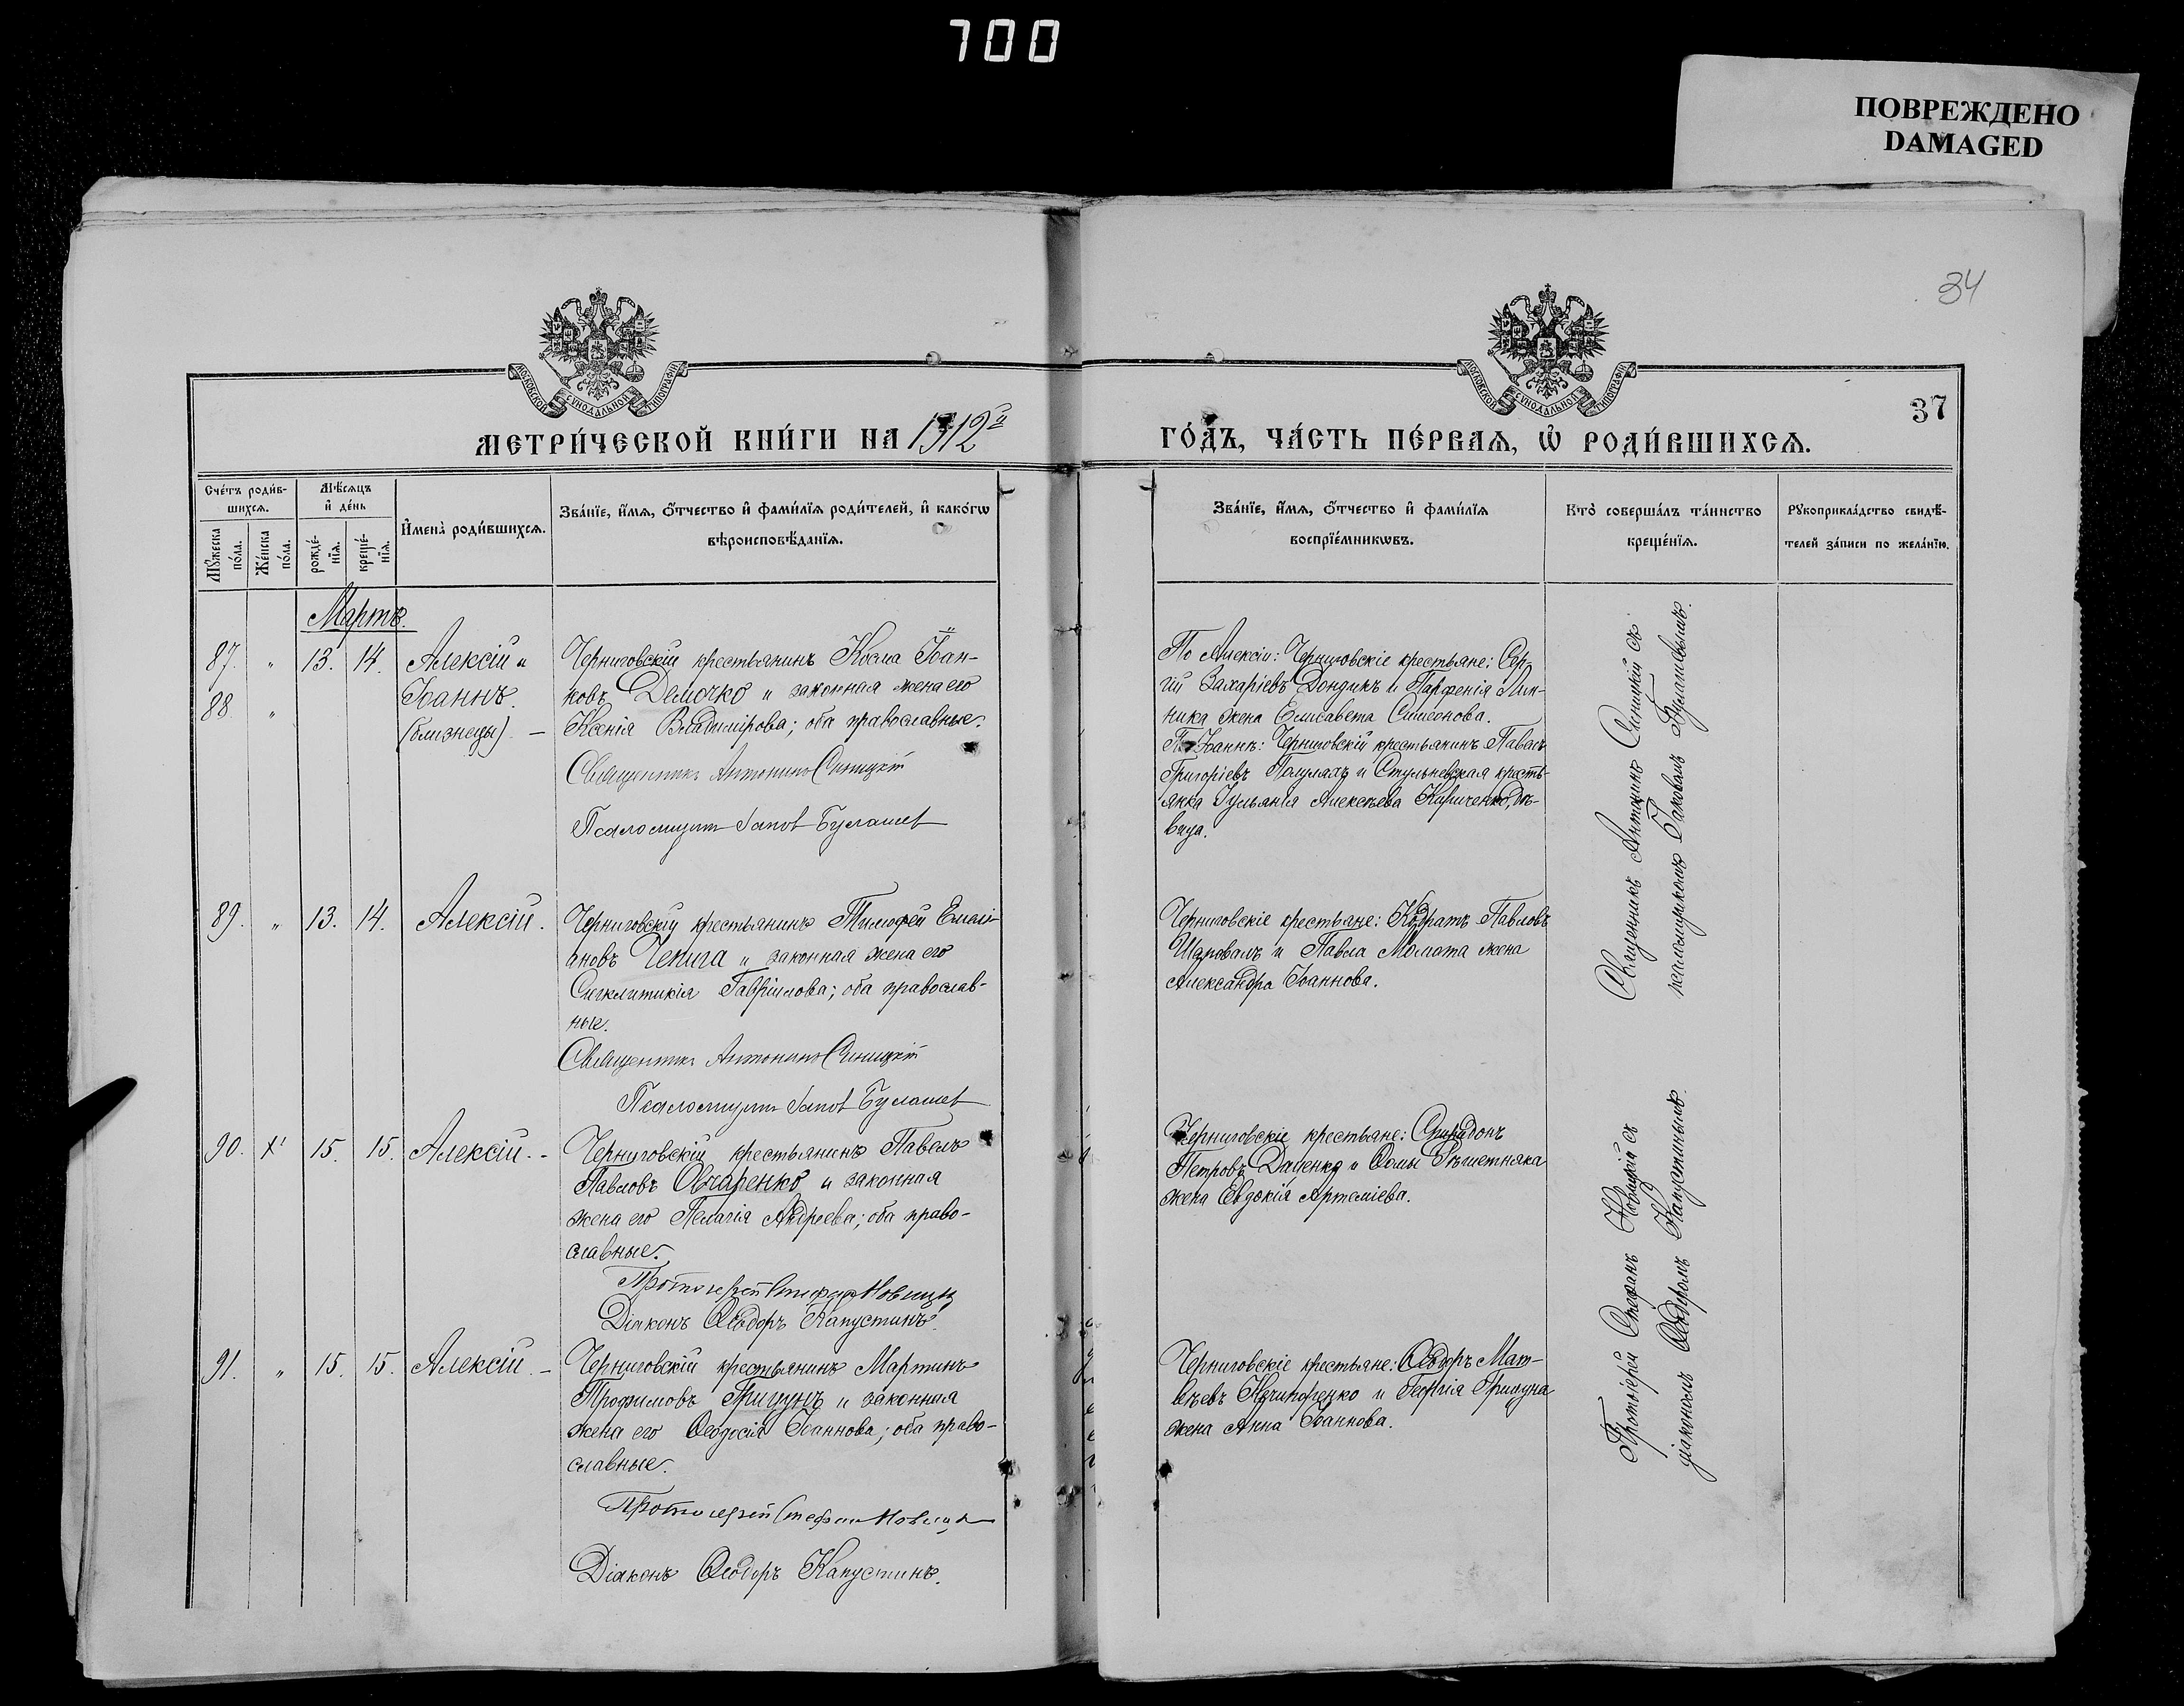 700
ПОВРЕЖДЕНО
DAMAGED
34
37
МОСКОВСКОЙ СѴНОДАЛЬНОЙ ТИПОГРАФІИ
МОСКОВСКОЙ СѴНОДАЛЬНОЙ ТИПОГРАФІИ
МЕТРИ́ЧЕСКОЙ КНИ́ГИ НА 1912й
ГО́ДЪ, ЧА́СТЬ ПЕ́РВАѦ, Ѡ҆ РОДИ́ВШИХСѦ.
Сче́тъ роди́в-
шихсѧ.
Мꙋ́жеска по́ла.
Же́нска по́ла.
Мѣ́сѧцъ
и҆ де́нь
рожде́-
нїѧ.
креще́-
нїѧ.
И҆мена̀ роди́вшихсѧ.
Зва́нїе, и҆́мѧ, о҆́тчество и҆ фами́лїѧ роди́телей, и҆ како́гѡ
вѣроисповѣ́данїѧ.
Зва́нїе, и҆́мѧ, о҆́тчество и҆ фами́лїѧ
воспрїе́мникѡвъ.
Кто̀ соверша́лъ та́инство
креще́нїѧ.
Рꙋкоприкла́дство свидѣ́-
телей за́писи по жела́нїю.
Мартъ.
87. " 13. 14. Алексій и
88 " Іоаннъ.
(близнецы). —
Черниговскій крестьянинъ Косма Іоан-
новъ Демочко и законная жена его
Ксенія Владимірова; оба православные.
Священникъ Антонинъ Синицкій
Псаломщикъ Іаковъ Булашев
По Алексіи: Черниговскіе крестьяне: Сер-
гій Захаріевъ Дондикъ и Парфенія Лин-
ника жена Елисавета Симеонова.
По Іоаннѣ: Черниговскій крестьянинъ Павелъ
Григоріевъ и Стульневская крестъ-
янка Іульянія Алексѣева Кириченко, дѣ-
вица.
Священникъ Антонинъ Синицкій съ
псаломщикомъ Іаковомъ Булашевымъ.
89. " 13. 14. Алексій.
Черниговскій крестьянинъ Тимофей Емели-
ановъ Чепига и законная жена его
Сигклитикія Гавріилова; оба православ-
ные.
Священникъ Антонинъ Синицкій
Псаломщикъ Іаковъ Булашев
Черниговскіе крестьяне: Кодратъ Павловъ
Шаповалъ и Павла Момота жена
Александра Іоаннова.
90. 15. 15. Алексій. -
Черниговскій крестьянинъ Павелъ
Павловъ Овчаренко и законная
жена его Пелагія Андреева; оба право-
славные.
Протоіерей Стефанъ Новицкій
Діаконъ Ѳеодоръ Капустинъ.
Черниговскіе крестьяне: Спиридонъ
Петровъ Даценко и Ѳомы Рѣшетняка
жена Евдокія Артеміева.
Протоіерей Стефанъ Новицкій съ
діакономъ Ѳеодоромъ Капустинымъ.
91. " 15. 15. Алексій. -
Черниговскій крестьянинъ Мартинъ
Трофимовъ Грицунъ и законная
жена его Ѳеодосія Іоаннова; оба право-
славные.
Протоіерей Стефанъ Новицкій
Діаконъ Ѳеодоръ Капустинъ.
Черниговскіе крестьяне: Ѳеодоръ Мат-
вѣевъ Ничипоренко и Георгія Грицуна
жена Анна Іоаннова.